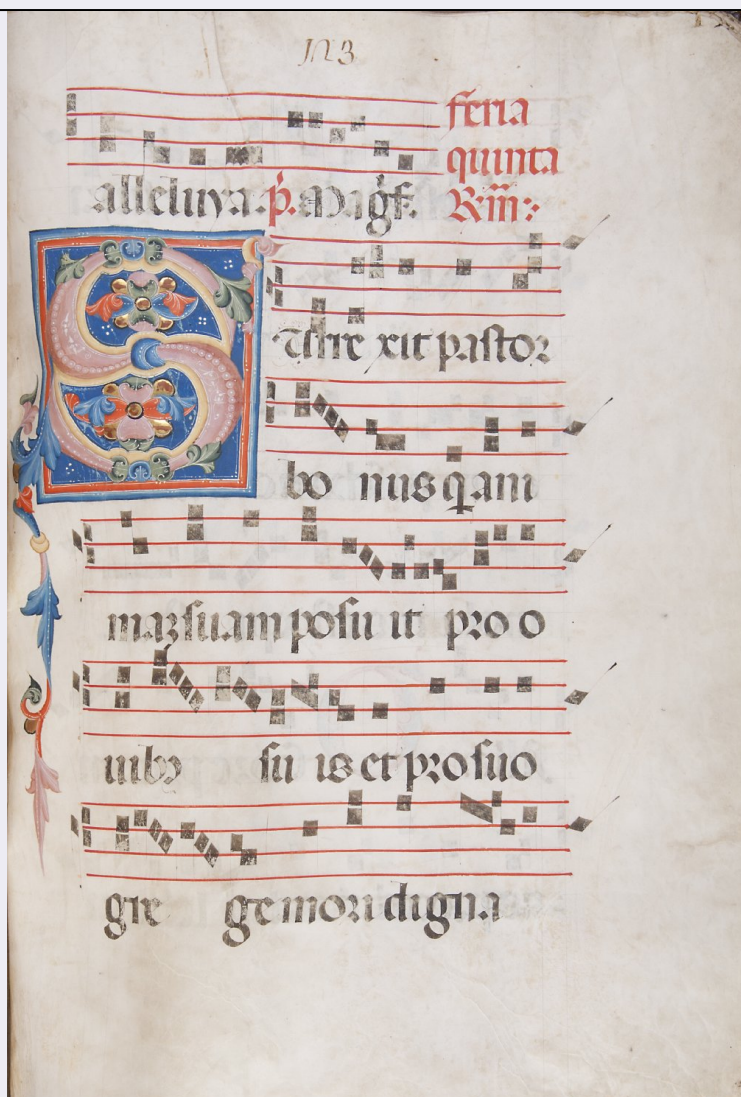 123
feria
quinta
alleluya. p̃. Magf̃. R. iii:
Surre xit pastor
bo nus q̃ ani
maʒ suam posu it pro o
uibꝰ su is et pro suo
gre ge mori digna